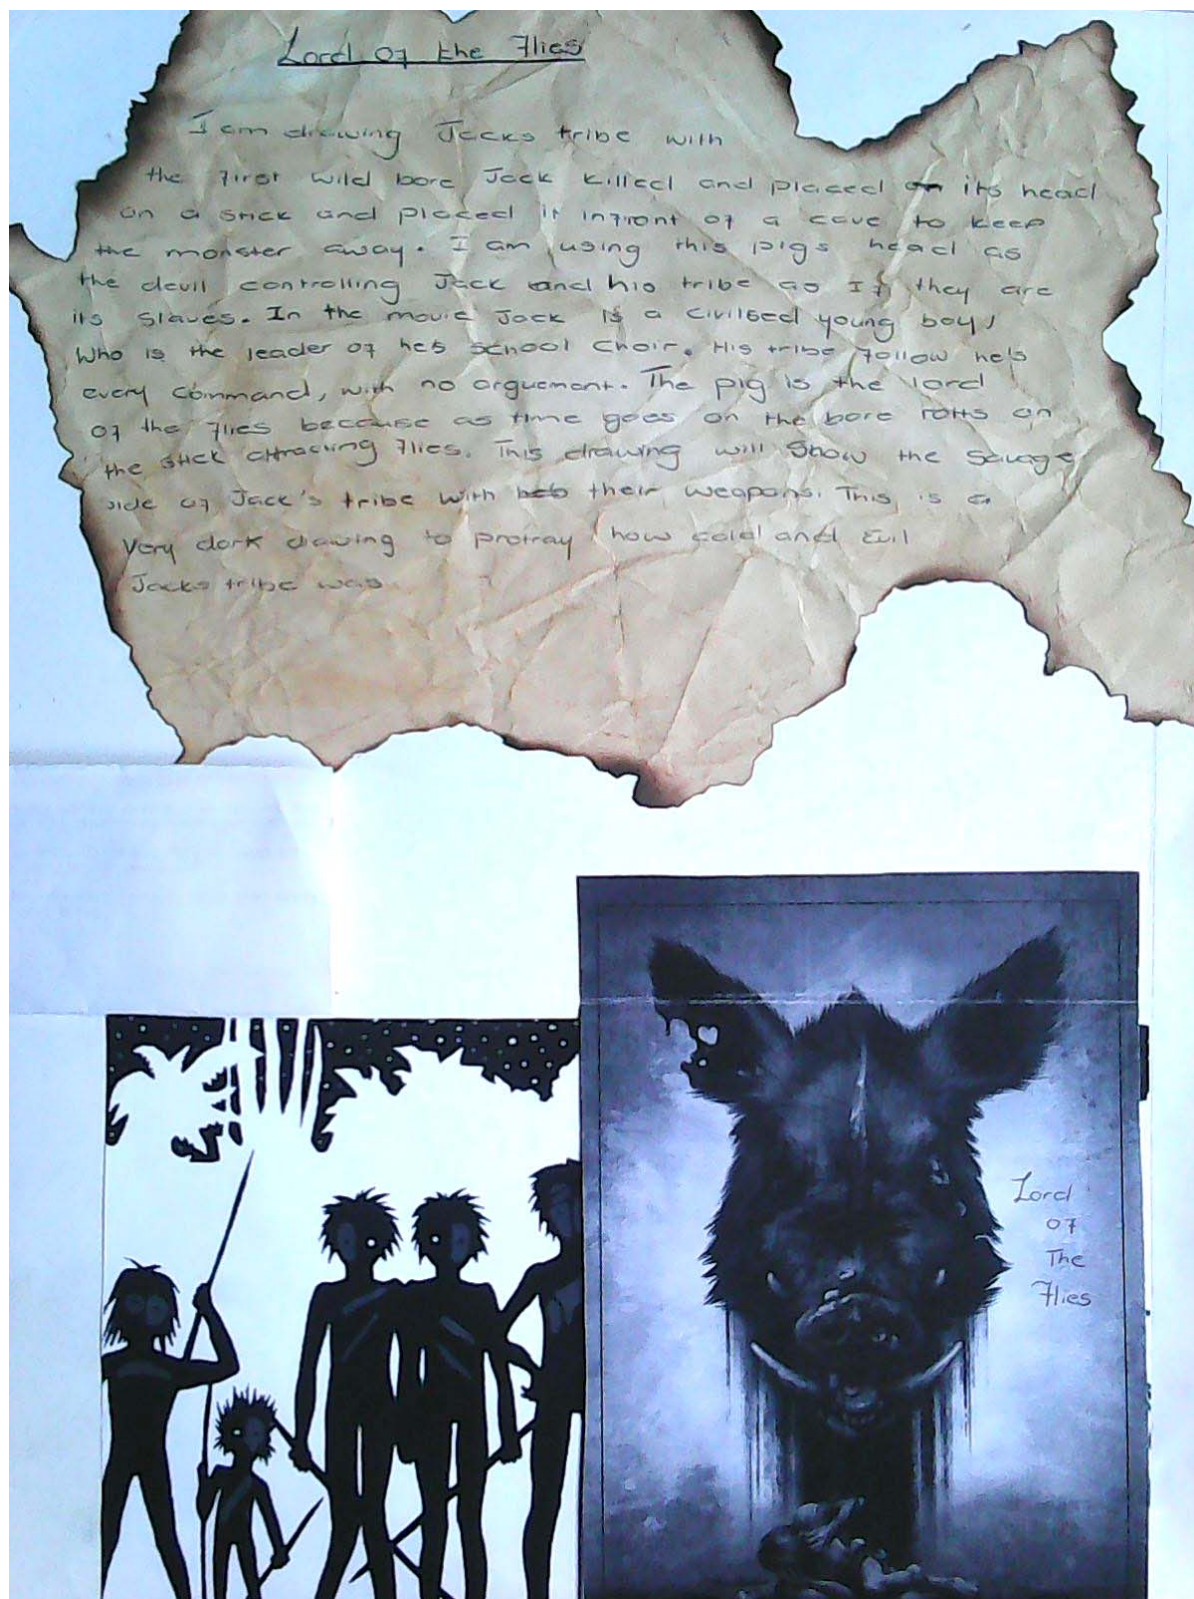 Lord of the Flies
I am drawing Jacks tribe with
the first wild bore Jack killed and placed its head
on a stick and placed it infront of a cave to keep
the monster away. I am using this pigs head as
the devil controlling Jack and his tribe as If they are
its slaves. In the movie Jack is a civilsed young boy,
Who is the leader of hes school choir. His tribe follow he's
every command, with no arguement. The pig is the lord
of the flies because as time goes on the bore rotts on
the stick attracting flies. This drawing will show the savage
side of Jack's tribe with their weapons. This is a
very dark drawing to protray how cold and Evil
Jacks tribe was
Lord
of
The
Flies